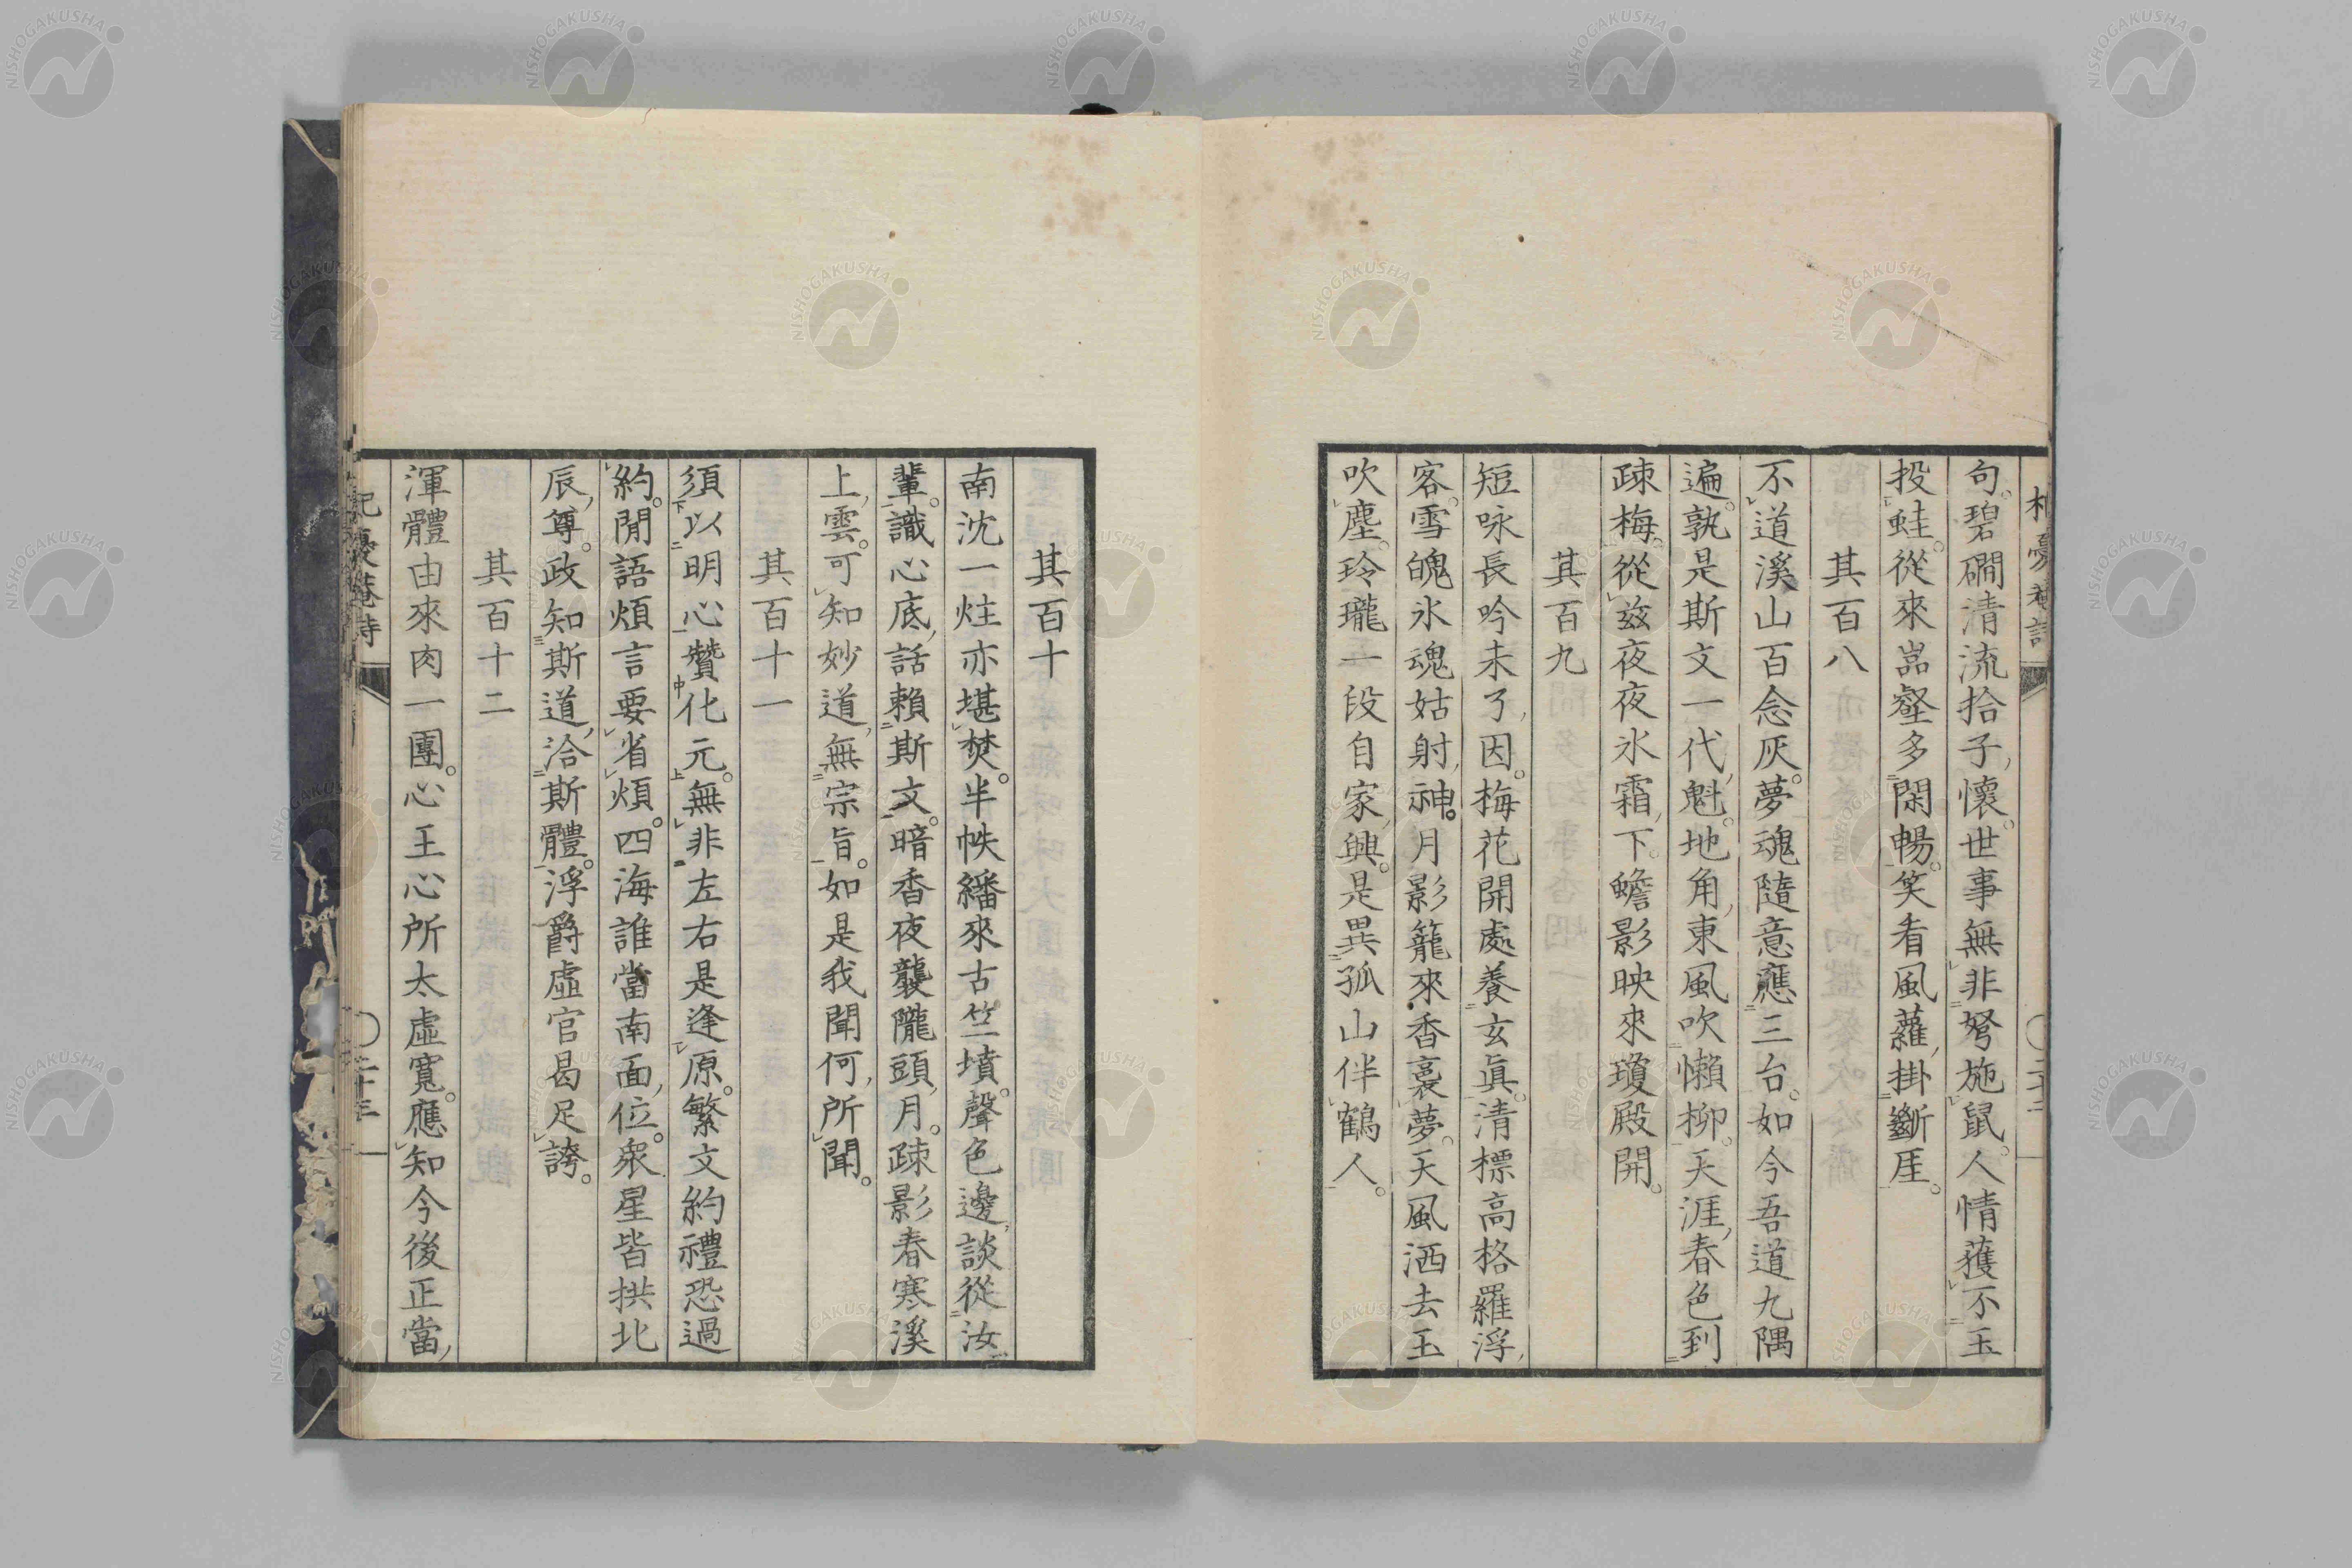 句。碧磵清流拾子懷。世事無非弩施鼠。人情獲不玉
投蛙。從來嵓壑多閑暢。笑看風蘿掛斷厓。
其百八
不道溪山百念灰。夢魂隨意應三台。如今吾道九隅
遍。孰是斯文一代魁。地角東風吹懶柳。天涯春色到
疎梅。從玆夜夜氷霜下。蟾影映來瓊殿開。
其百九
短咏長吟未了因。梅花開處養玄眞。清標高格羅浮
客。雪魄氷魂姑射神。月影籠來香裏夢。天風洒去玉
吹塵。玲瓏一段自家興。是異孤山伴鶴人。
其百十
南沈一炷亦堪焚。半帙繙來古竺墳。聲色邊談從汝
輩。識心底話賴斯文。暗香夜襲隴頭月。疎影春寒溪
上雲。可知妙道無宗旨。如是我聞何所聞。
其百十一
須以明心贊化元。無非左右是逢原。繁文約禮恐過
約。閒語煩言要省煩。四海誰當南面位。衆星皆拱北
辰尊。政知斯道洽斯體。浮爵虛官曷足誇。
其百十二
渾體由來肉一團。心王心所太虛寬。應知今後正當